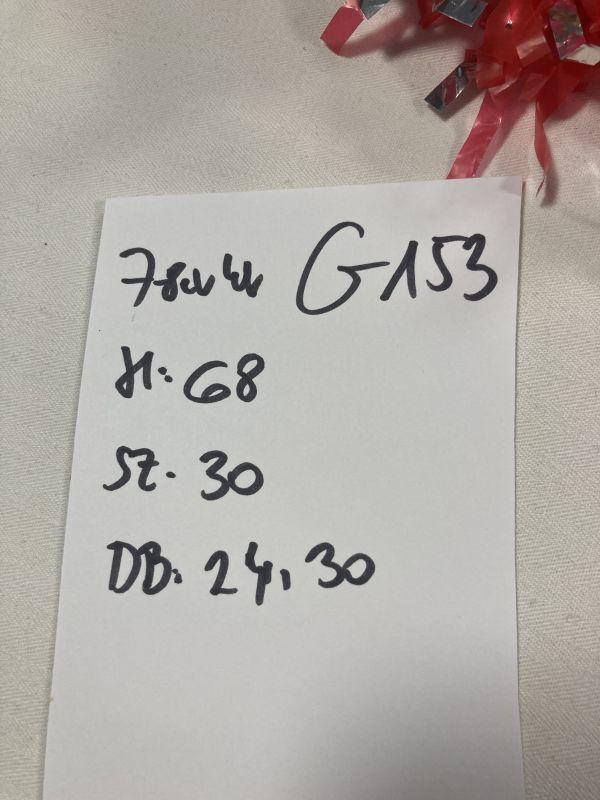 G153
H: 68
SZ. 30
DB: 24, 30